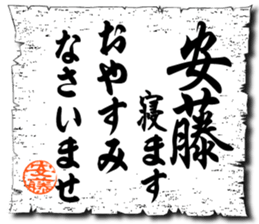 安藤
寝ます
おやすみ
なさいませ
安藤